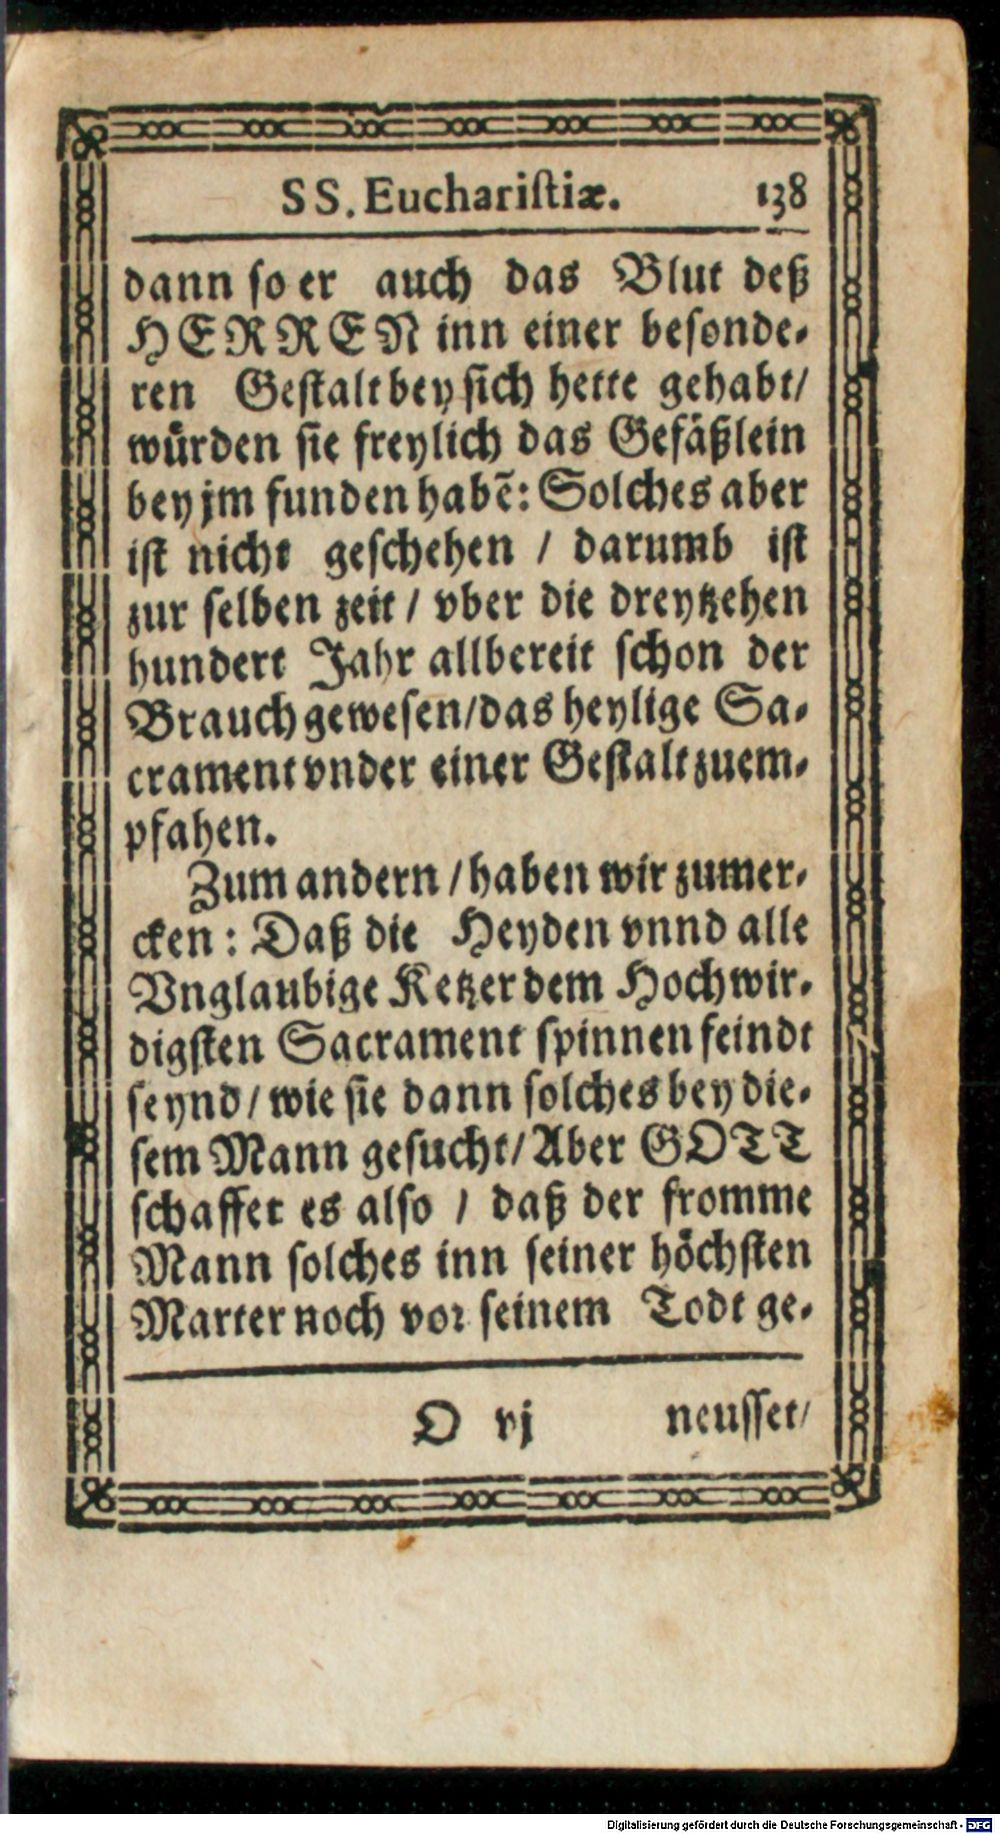 SS. Euchariſtiæ. 138
dann so er auch das Blut deß
HERREN inn einer besonde-
ren Gestalt bey sich hette gehabt/
wuͤrden sie freylich das Gefäßlein
bey jm funden habẽ: Solches aber
ist nicht geschehen / darumb ist
zur selben zeit / vber die dreytzehen
hundert Jahr allbereit schon der
Brauch gewesen/das heylige Sa-
crament vnder einer Gestalt zuem-
pfahen.
Zum andern / haben wir zumer-
cken: Daß die Heyden vnnd alle
Vnglaubige Ketzer dem Hochwir-
digsten Sacrament spinnen feindt
seynd / wie sie dann solches bey die-
sem Mann gesucht/ Aber GOTT
schaffet es also / daß der fromme
Mann solches inn seiner höchsten
Marter noch vor seinem Todt ge-
O vj neusset/
Digitalisierung gefördert durch die Deutsche Forschungsgemeinschaft - DFG